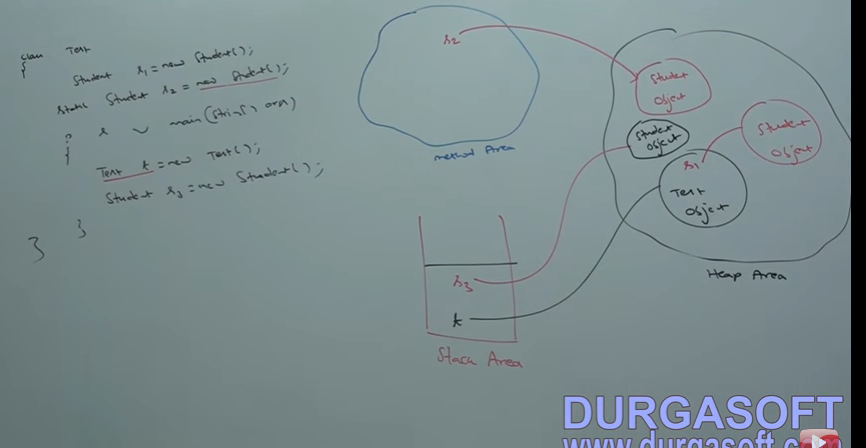 class Test
{
Student s1 = new Student();
static Student s2 = new Student();
{ s v main(String[] args)
Test t = new Test();
Student s3 = new Student();
}
}
s2
method Area
Student
object
Student
object
Student
object
s1
Test
object
Heap Area
s3
t
Stack Area
DURGASOFT
www.durgasoft.com